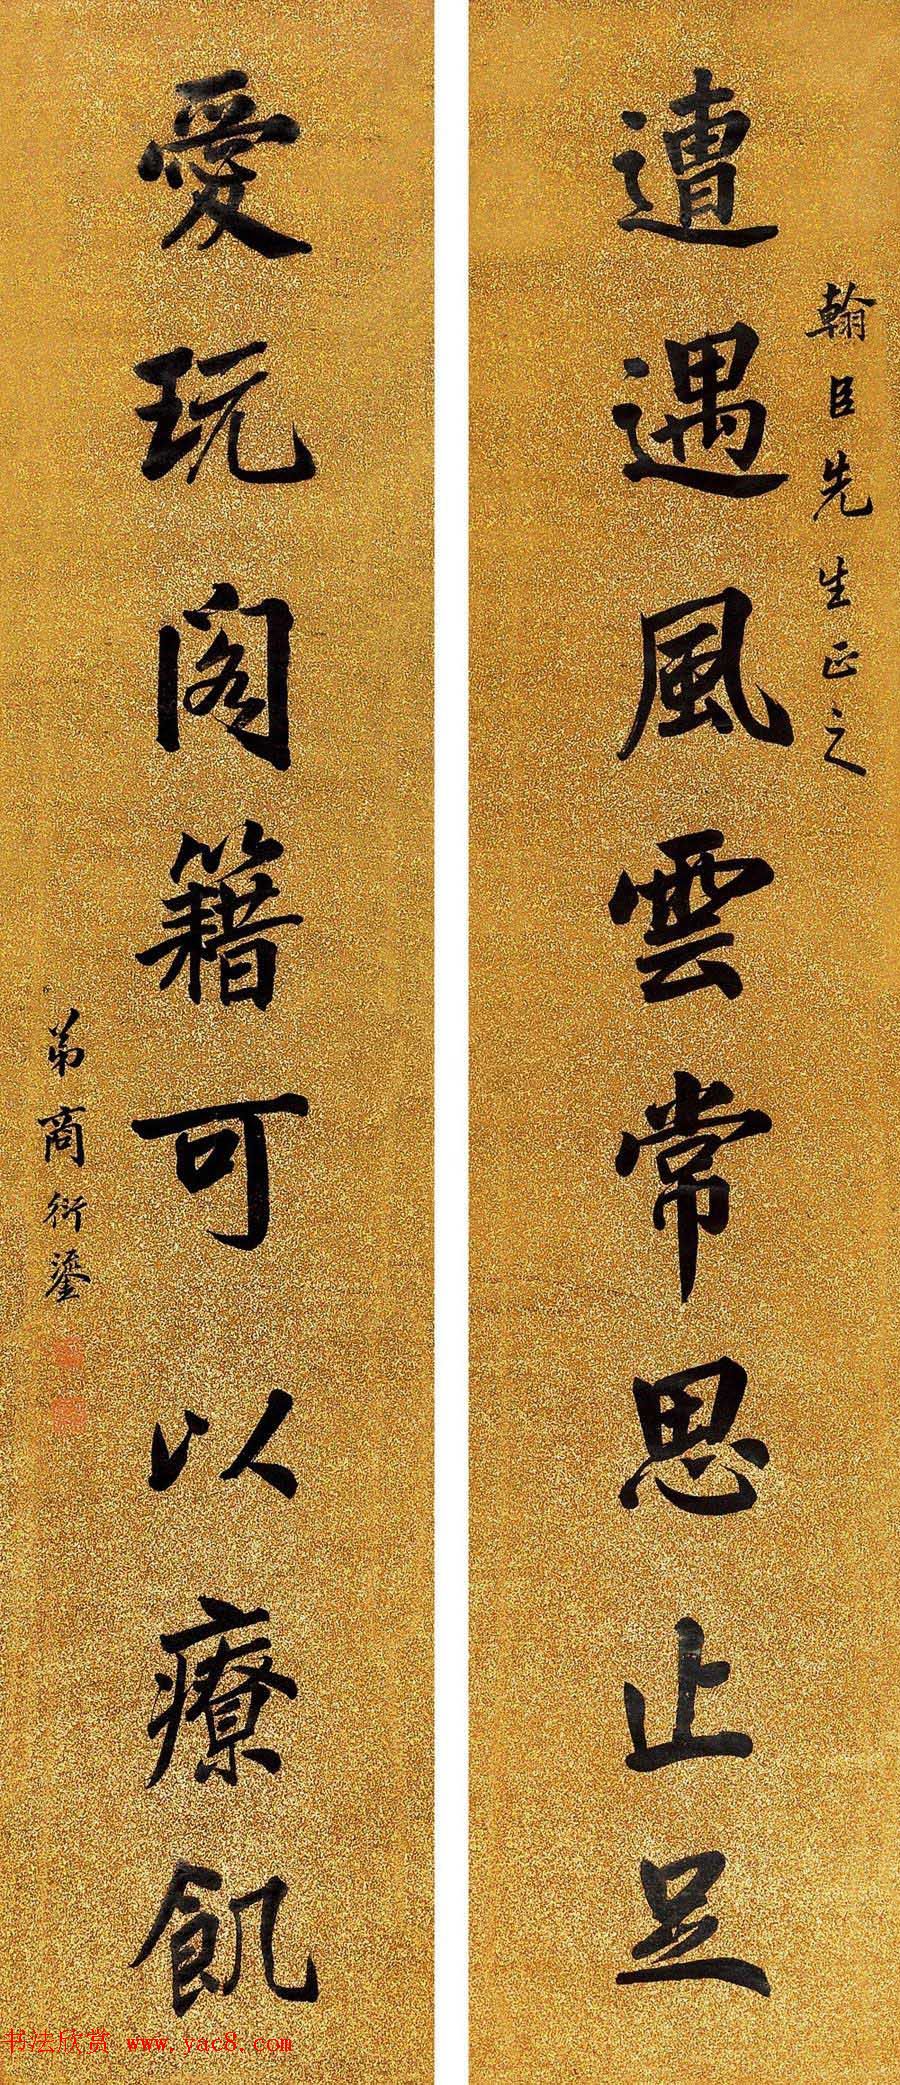 翰臣先生正之
遭遇風雲常思止足
愛玩閣籍可以療飢
弟商衍鎏
书法欣赏 www.yac8.com